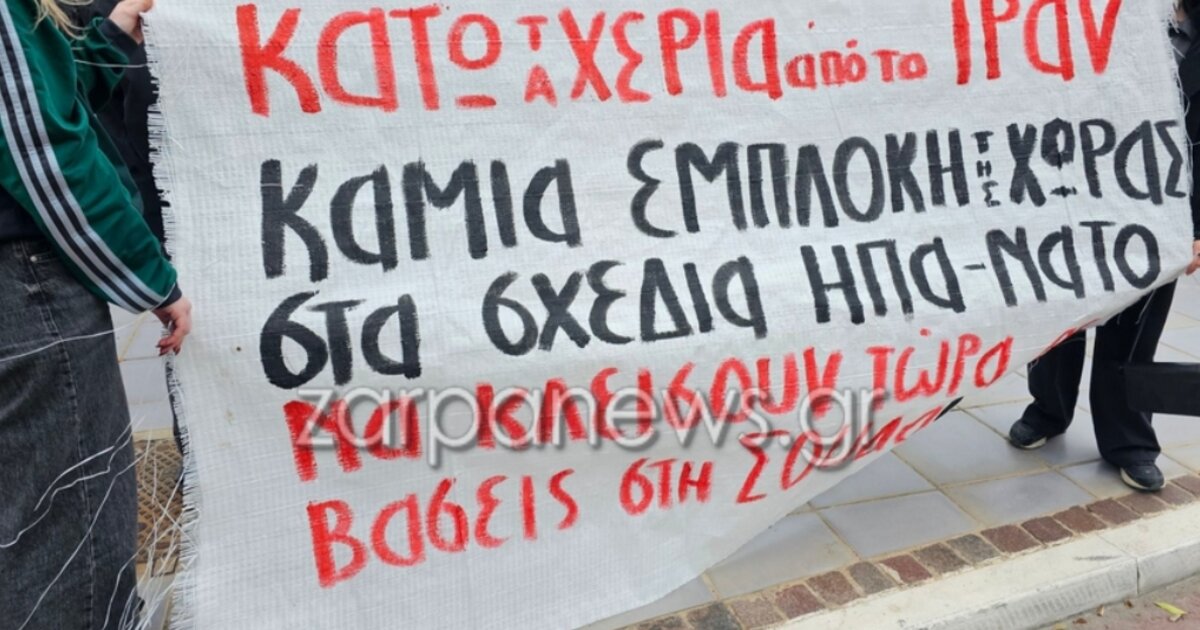 ΚΑΤΩ ΤΑ ΧΕΡΙΑ από το ΙΡΑΝ
ΚΑΜΙΑ ΕΜΠΛΟΚΗ ΤΗΣ ΧΩΡΑΣ
στα σχέδια ΗΠΑ-ΝΑΤΟ
ΝΑ ΚΛΕΙΣΟΥΝ ΤΩΡΑ
ΒΑσΕΙΣ στη
zarpanews.gr